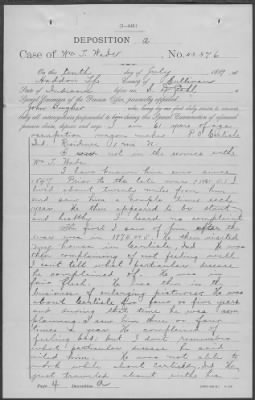 DEPOSITION a
Case of Wm T. Weder, No.
On this tenth day of July, 1889, at
Haddon Tp., County of Sullivan
State of Indiana, before me,
Special Examiner of the Pension Office, personally appeared
John, who, being by me first duly sworn to answer
truly all interrogatories propounded to him during this Special Examination of aforesaid
pension claim, deposes and says: I am 61 years of age
occupation wagon maker P.O. Carlisle
Ind
I was not in the service with
Wm T.
I have known him ever since
1847. Prior to the late war
lived about twenty miles from him
and saw him a couple times each
year. He then appeared to be stout
and healthy I heard no complaint
The first I saw of him after the
war was in 1870 or 5. He then visited
my house in Carlisle, Ind. He was
then complaining of not feeling well
I can't tell what particular disease
he complained of. He was in
fair flesh. He was then in the
business of enlarging pictures. He was
about Carlisle for four or five years
and during that time he was com-
plaining I saw him three or four
times a year. He complained of
feeling bad but I don't remember
what particular disease he said
ailed him. He was not able to
work while about Carlisle, Ind. He
just traveled about in the
Page 4 Deposition a